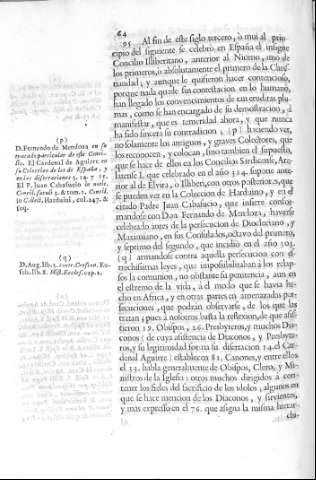 64
95 Al fin de este siglo tercero, ò mui al prin-
cipio del siguiente se celebrò en España el insigne
Concilio Illiberitano, anterior al Niceno, uno de
los primeros, ò absolutamente el primero de la Chris-
tiandad; y aunque le quisieron hacer contencioso,
porque nada quede sin contestacion en lo humano,
han llegado los convencimientos de tan eruditas plu-
mas, como se han encargado de su demonstracion, à
manifestar, que es temeridad ahora, y que nunca
ha sido sincera su contradicion; (p) haciendo ver,
no solamente los antiguos, y graves Colectores, que
los reconocen, y colocan, sino tambien el supuesto,
que se hace de ellos en los Concilios Sardicense, Are-
latense I. que celebrado en el año 314. supone ante-
rior al de Elvira, ò Illiberi, con otros posteriores, que
se pueden ver en la Coleccion de Harduino, y en el
citado Padre Juan Cabasucio, que infiere confor-
mandose con Don Fernando de Mendoza, haverse
celebrado antes de la persecucion de Diocleciano, y
Maximiano, en sus Consulados, octavo del primero,
y septimo del segundo, que incidiò en el año 303.
(q) armandose contra aquella persecucion con es-
trechissimas leyes, que impossibilitaban à los relap-
sos la comunion, no obstante su penitencia, aun en
el estremo de la vida, à el modo que se havia he-
cho en Africa, y en otras partes en amenazadas per-
secuciones, que podràn observarse, de los que las
tratan; pues à nosotros basta la reflexion, de que assis-
tieron 19. Obispos, 26. Presbyteros, y muchos Dia-
conos (de cuya asistencia de Diaconos, y Presbyte-
ros, y su legitimidad forma su disertacion 14. el Car-
denal Aguirre) establecen 81. Canones, y entre ellos
el 33. habla generalmente de Obispos, Clero, y Mi-
nistros de la Iglesia: otros muchos dirigidos à con-
tener los fieles del sacrificio de los idolos; algunos en
que se hace mencion de los Diaconos, y sirvientes,
y mas expresso en el 76. que asigna la misma
(p)
D. Fernando de Mendoza en su
tratado particular de este Conci-
lio. El Cardenal de Aguirre en
su Coleccion de los de España, y
en las disertaciones 13. 14 y 15.
El P. Juan Cabasucio in notit.
Concil. 
in Collect. Harduini, col. 247. &
505.
(q)
D. Aug. lib. 2. contr. Crescon. Eu-
seb. lib. 8. Hist. Eccles. cap. 2.